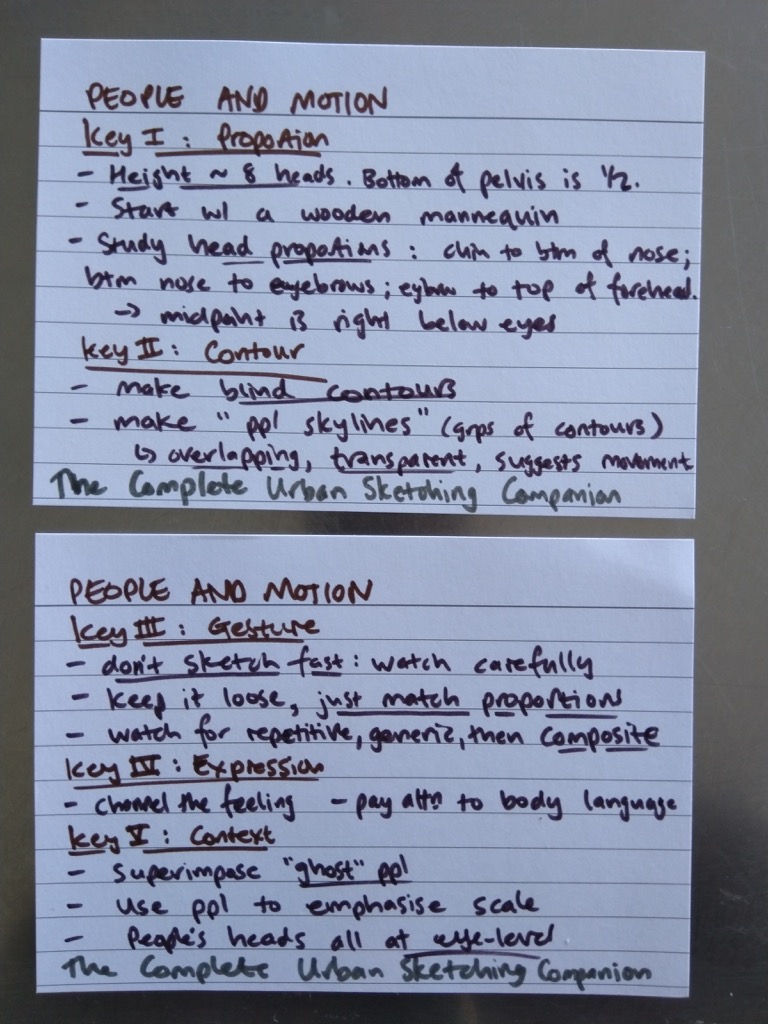 PEOPLE AND MOTION
Key I : Proportion
- Height ~ 8 heads. Bottom of pelvis is 1/2.
- Start w/ a wooden mannequin
- Study head proportions : chin to btm of nose;
btm nose to eyebrows; eybrw to top of forehead.
→ midpoint is right below eyes
Key II : Contour
- make blind contours
- make "ppl skylines" (grps of contours)
↳ overlapping, transparent, suggests movement
The Complete Urban Sketching Companion
PEOPLE AND MOTION
Key III : Gesture
- don't sketch fast : watch carefully
- keep it loose, just match proportions
- watch for repetitive, generic, then composite
Key IV : Expression
- channel the feeling - pay attn to body language
Key V : Context
- Superimpose "ghost" ppl
- use ppl to emphasise scale
- People's heads all at eye-level
The Complete Urban Sketching Companion